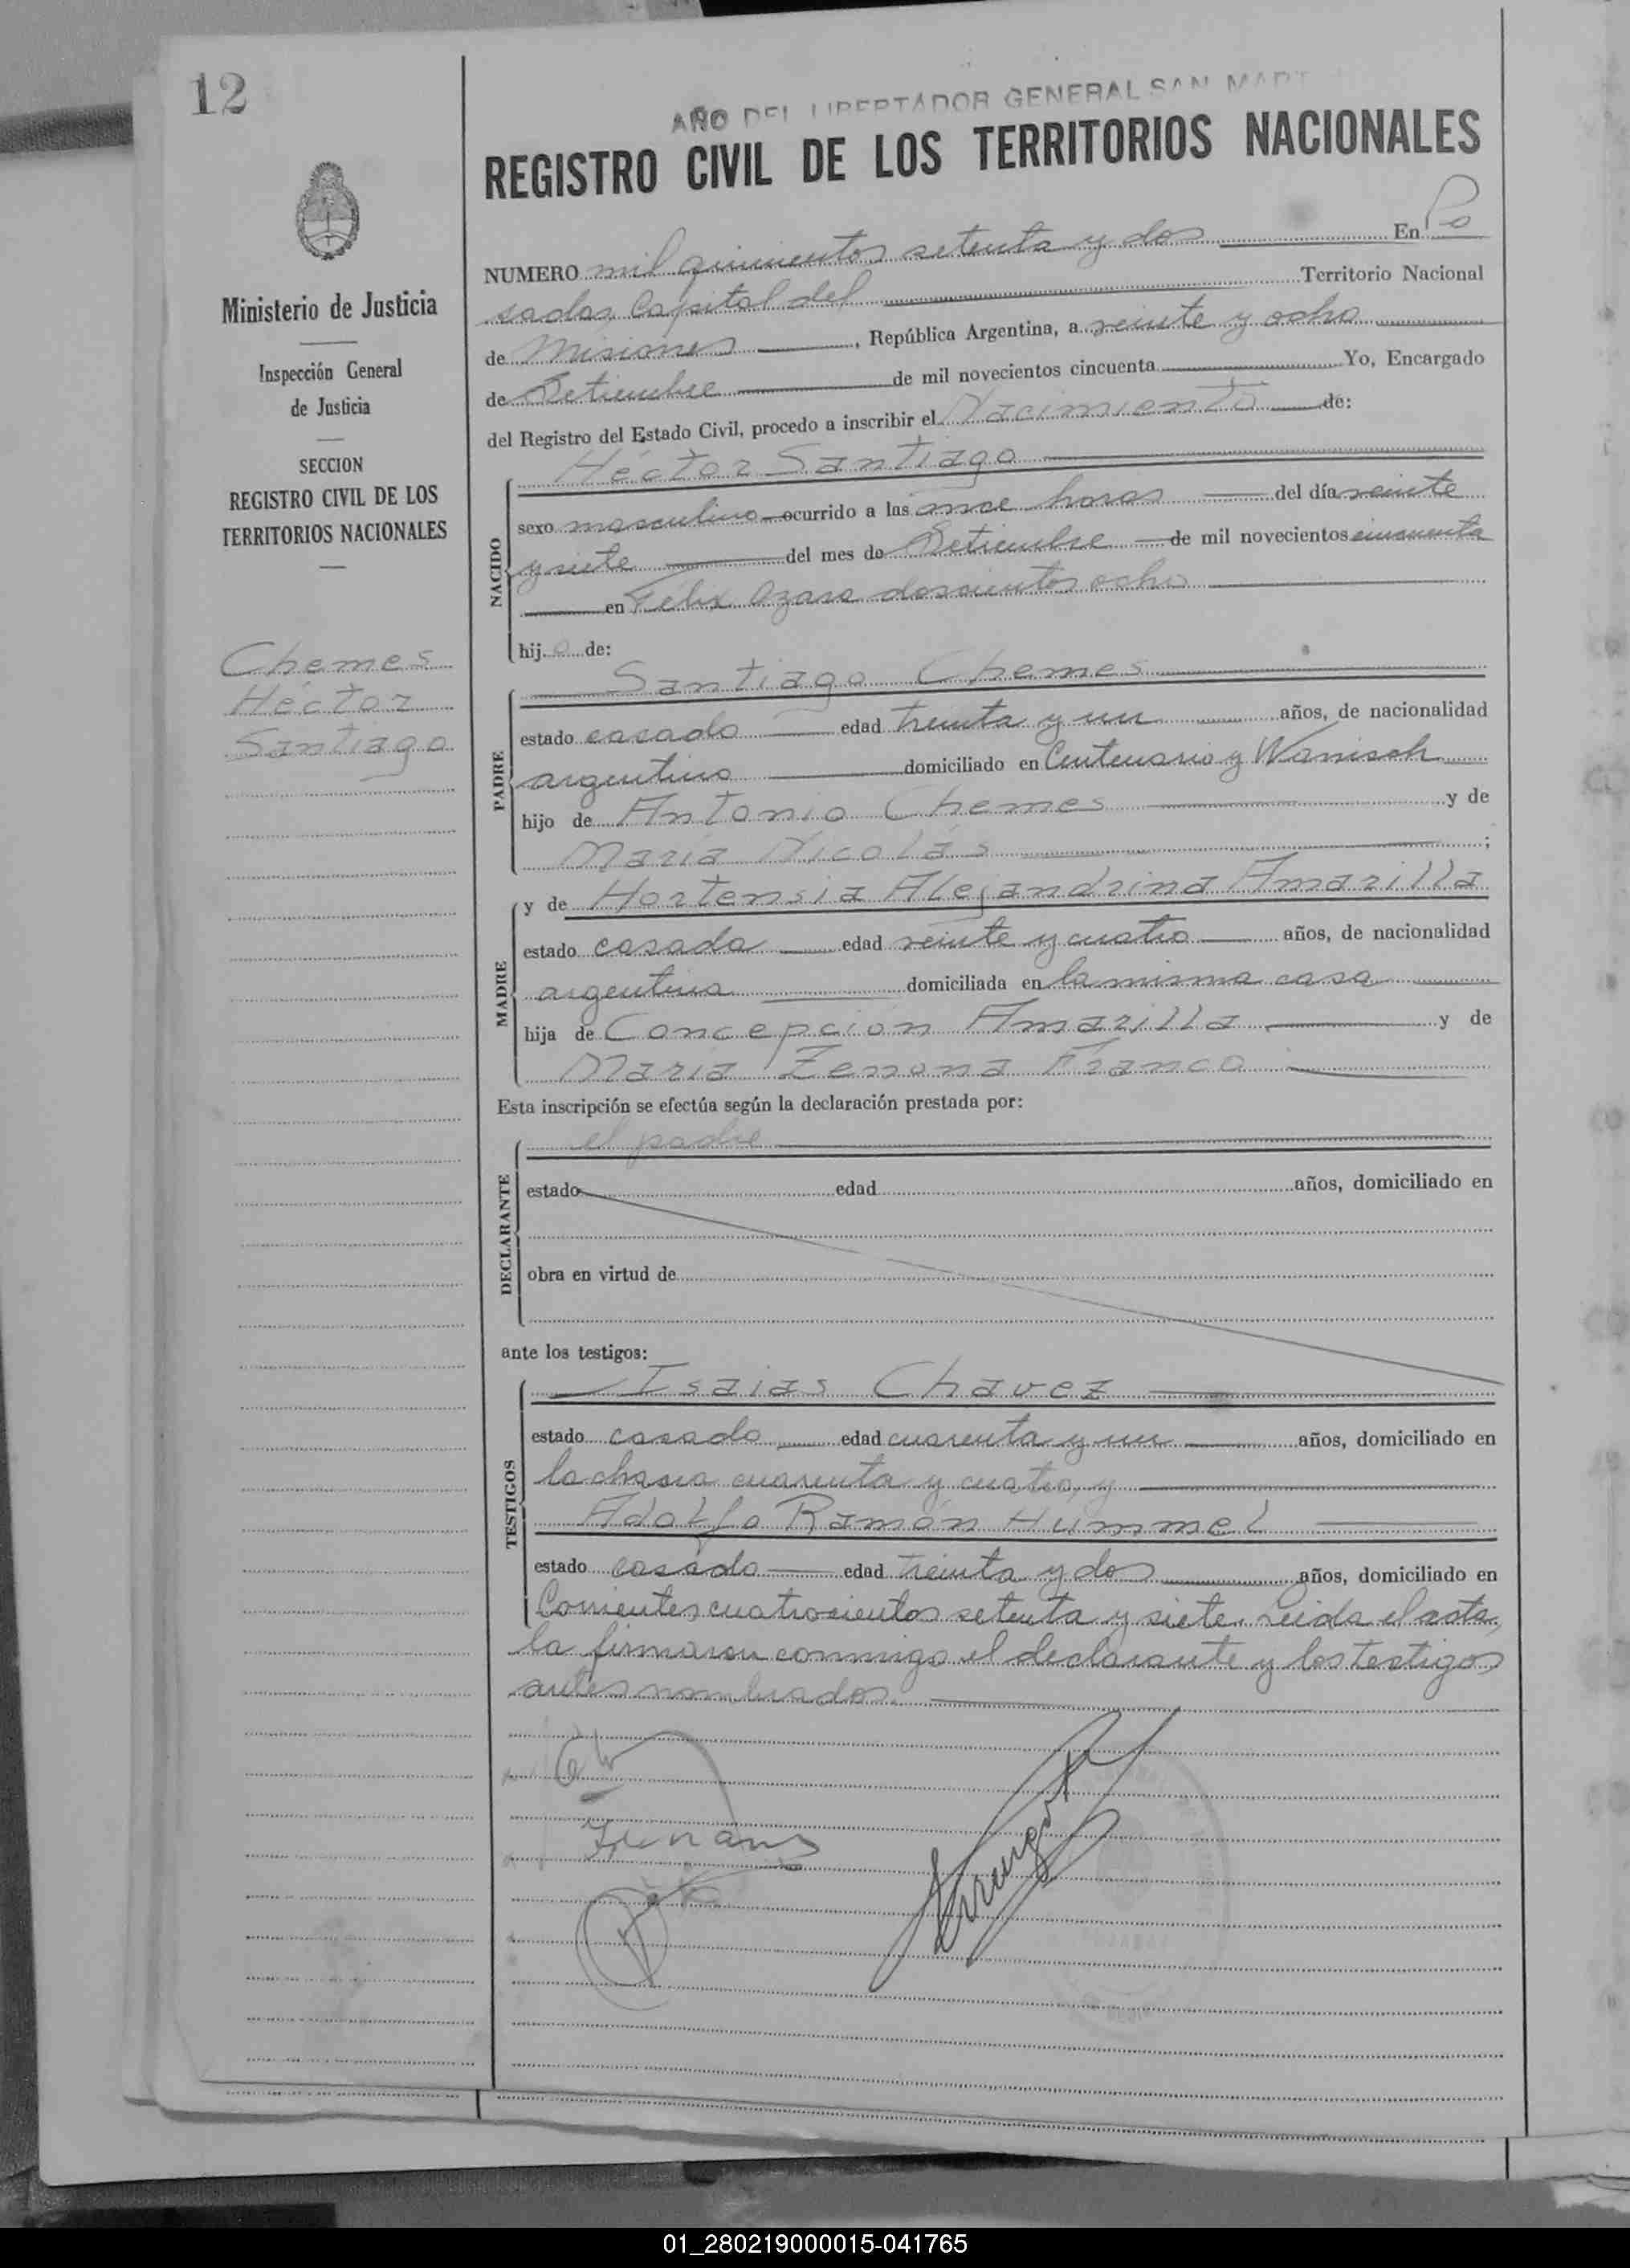 12
AÑO DEL LIBERTADOR GENERAL SAN MART
REGISTRO CIVIL DE LOS TERRITORIOS NACIONALES
Ministerio de Justicia
Inspección General
de Justicia
SECCION
REGISTRO CIVIL DE LOS
TERRITORIOS NACIONALES
Chemes
Héctor
Santiago
NUMERO mil quinientos setenta y dos En Po
sadas, Capital del Territorio Nacional
de Misiones, República Argentina, a veinte y ocho
de Setiembre de mil novecientos cincuenta Yo, Encargado
del Registro del Estado Civil, procedo a inscribir el Nacimiento de:
NACIDO
Héctor Santiago
sexo masculino ocurrido a las once horas del día veinte
y siete del mes de Setiembre de mil novecientos cincuenta
en Félix Azara doscientos ocho
hijo de:
PADRE
Santiago Chemes
estado casado edad treinta y un años, de nacionalidad
argentino domiciliado en Centenario y Wanisch
hijo de Antonio Chemes y de
María Nicolás ;
MADRE
y de Hortensia Alejandrina Amarilla
estado casada edad veinte y cuatro años, de nacionalidad
argentina domiciliada en la misma casa
hija de Concepción Amarilla y de
María Zenona Franco
Esta inscripción se efectúa según la declaración prestada por:
DECLARANTE
el padre
estado edad años, domiciliado en
obra en virtud de
ante los testigos:
TESTIGOS
Isaias Chavez
estado casado edad cuarenta y un años, domiciliado en
la chacra cuarenta y cuatro, y
Adolfo Ramón Hummel
estado casado edad treinta y dos años, domiciliado en
Corrientes cuatrocientos setenta y siete. Leida el acta,
la firmaron conmigo el declarante y los testigos
antes nombrados.
01_280219000015-041765